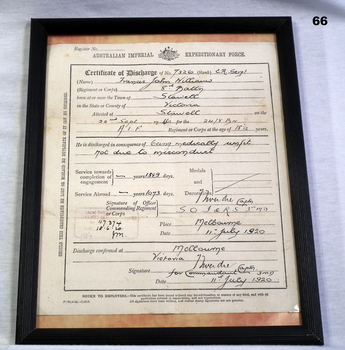 66
Register No.
AUSTRALIAN IMPERIAL EXPEDITIONARY FORCE.
Certificate of Discharge of No. 7326 (Rank) L/R Sergt
(Name) Francis John Williams
(Regiment or Corps) 8th Battn
Born at or near the Town of Stawell
in the State or County of Victoria
Attested at Stawell
on 22nd Sept for the 24/8 Bn
A.I.F. Regiment or Corps at the age of 18
He is discharged in consequence of being medically unfit
not due to misconduct
Service towards completion of engagement — years 1369 days
Medals and Decorations
Service Abroad — years 1073 days
Signature of Officer Commanding Regiment or Corps
Capt
S O I & R S 3rd MD
Place Melbourne
Date 11th July 1920
Discharge confirmed at Melbourne
Victoria
Signature Capt
for Commandant 3rd MD
Date 11th July 1920
SHOULD THIS CERTIFICATE BE LOST OR MISLAID NO DUPLICATE OF IT CAN BE OBTAINED.